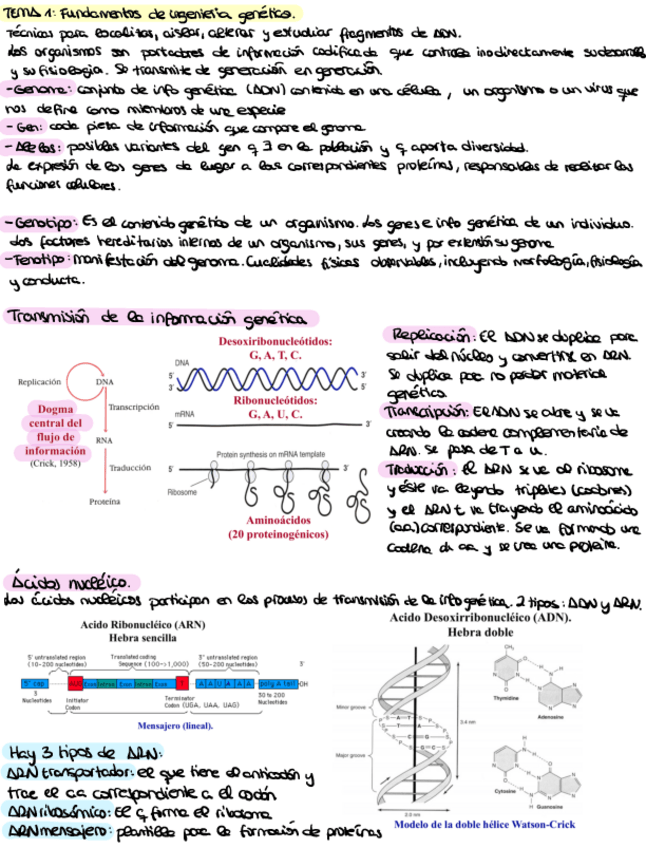 TEMA 1: Fundamentos de ingeniería genética.
Técnicas para localizar, aislar, alterar y estudiar fragmentos de ADN.
Los organismos son portadores de información codificada que controla indirectamente su desarrollo
y su fisiología. Se transmite de generación en generación.
- Genoma: conjunto de info genética (ADN) contenida en una célula, un organismo o un virus que
nos define como miembros de una especie
- Gen: cada pieza de información que compone el genoma
- Alelos: posibles variantes del gen q ∃ en la población y q aporta diversidad.
La expresión de los genes da lugar a las correspondientes proteínas, responsables de realizar las
funciones celulares.
- Genotipo: Es el contenido genético de un organismo. Los genes e info genética de un individuo.
Los factores hereditarios internos de un organismo, sus genes, y por extensión su genoma
- Fenotipo: manifestación del genoma. Cualidades físicas observables, incluyendo morfología, fisiología
y conducta.
Transmisión de la información genética
Replicación
DNA
Transcripción
Dogma
central del
flujo de
información
(Crick, 1958)
RNA
Traducción
Proteína
Desoxiribonucleótidos:
G, A, T, C.
DNA
5' 3'
3' 5'
Ribonucleótidos:
G, A, U, C.
mRNA
5' 3'
Protein synthesis on mRNA template
5' 3'
Ribosome
Aminoácidos
(20 proteinogénicos)
Replicación: El ADN se duplica para
salir del núcleo y convertirse en ARN.
Se duplica para no perder material
genético.
Transcripción: El ADN se abre y se va
creando la cadena complementaria de
ARN. Se pasa de T a U.
Traducción: El ARN se va al ribosoma
y éste va leyendo tripletes (codones)
y el ARN t va trayendo el aminoácido
(aa) correspondiente. Se va formando una
cadena de aa y se crea una proteína.
Ácidos nucléico.
Los ácidos nucléicos participan en los procesos de transmisión de la info genética. 2 tipos: ADN y ARN.
Acido Ribonucléico (ARN)
Hebra sencilla
5' untranslated region
(10-200 nucleotides)
Translated coding
Sequence (100->1,000)
3' untranslated region
(50-200 nucleotides)
3'
5' cap AUG Exon Intron Exon Intron Exon T A A U A A A poly A tail -OH
3
Nucleotides
Initiator
Codon
Terminator
Codon (UGA, UAA, UAG)
30 to 200
Nucleotides
Mensajero (lineal).
Hay 3 tipos de ARN:
ARN transportador: el que tiene el anticodón y
trae el aa correspondiente al codón
ARN ribosómico: El q forma el ribosoma
ARN mensajero: plantilla para la formación de proteínas
Acido Desoxirribonucléico (ADN).
Hebra doble
Minor groove
Major groove
3.4 nm
2.0 nm
Thymidine
Adenosine
Cytosine
Guanosine
Modelo de la doble hélice Watson-Crick